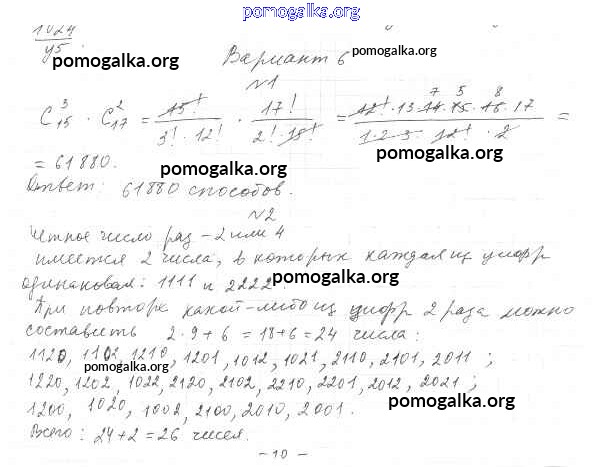 pomogalka.org
1024
y5.
pomogalka.org
Вариант 6 pomogalka.org
№1
C³₁₅ · C²₁₇ = 15!/(3! · 12!) · 17!/(2! · 15!) = (12! · 13 · 14 · 15 · 16 · 17)/(1 · 2 · 3 · 12! · 2) =
7 5 8
= 61 880.
pomogalka.org
pomogalka.org
Ответ: 61880 способов.
№2
Четное число раз – 2 или 4
имеется 2 числа, в которых каждая из цифр
одинаковая: 1111 и 2222 pomogalka.org
При повторе какой-либо из цифр 2 раза можно
составить 2 · 9 + 6 = 18 + 6 = 24 числа:
1120, 1102, 1210, 1201, 1012, 1021, 2110, 2101, 2011;
pomogalka.org
1220, 1202, 1022, 2120, 2102, 2210, 2201, 2012, 2021;
1200, 1020, 1002, 2100, 2010, 2001.
pomogalka.org
Всего: 24 + 2 = 26 чисел.
– 10 –